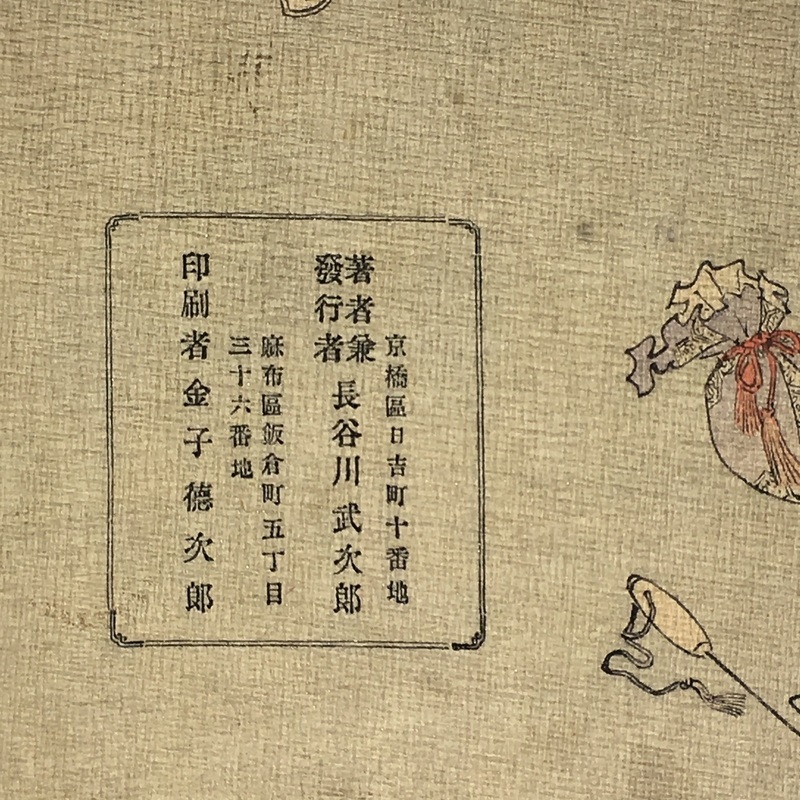 京橋區日吉町十番地
著者兼
發行者
長谷川武次郎
麻布區飯倉町五丁目
三十六番地
印刷者金子德次郎